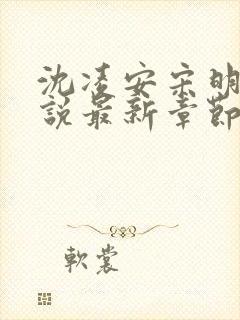 沈凌安宋明
說最新章節
軟裳